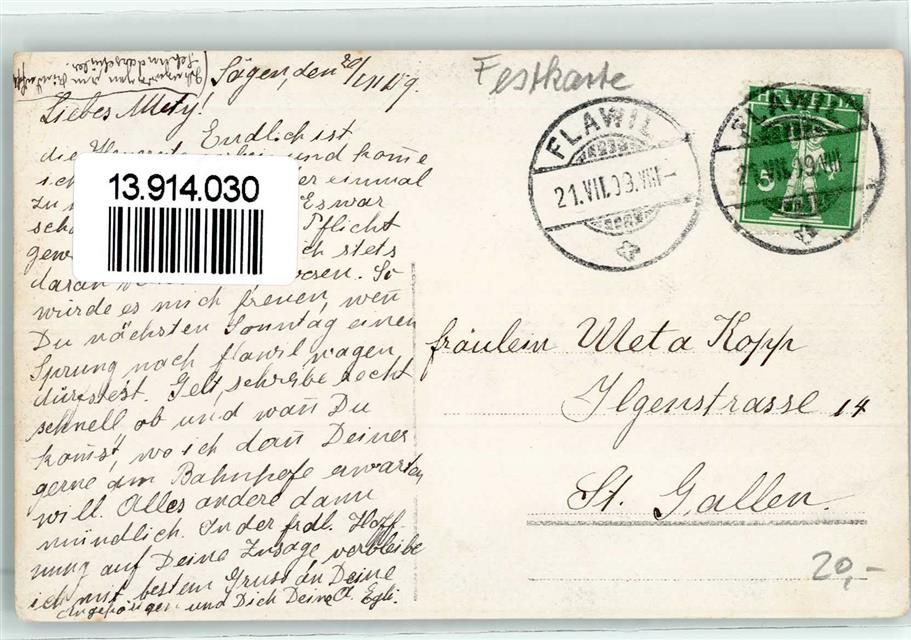 Sägen, den 20/VII 09.
Liebes Mety!
Endlich ist
die und kom̄e
einmal
zu Es war
Pflicht
stets
daran
würde es mich freuen, wen̄
Du nächsten Sonntag einen
Sprung nach Flawil wagen
dürftest. Gelt, schreibe docht
schnell ob und wan̄ Du
kom̄st, wo ich dan̄ Deiner
gerne am Bahnhofe erwarten
will. Alles andere dann
mündlich. In der frdl. Hoff-
nung auf Deine Zusage verbleibe
ich mit bestem Gruss an Deine
Angehörigen und Dich Deine A. Egli.
13.914.030
Festkarte
FLAWIL
21.VII.09.VIII-
FLAWIL
21.VII.09.VIII-
HELVETIA
5
Fräulein Meta Kopp
Ilgenstrasse 14
St. Gallen.
20,-